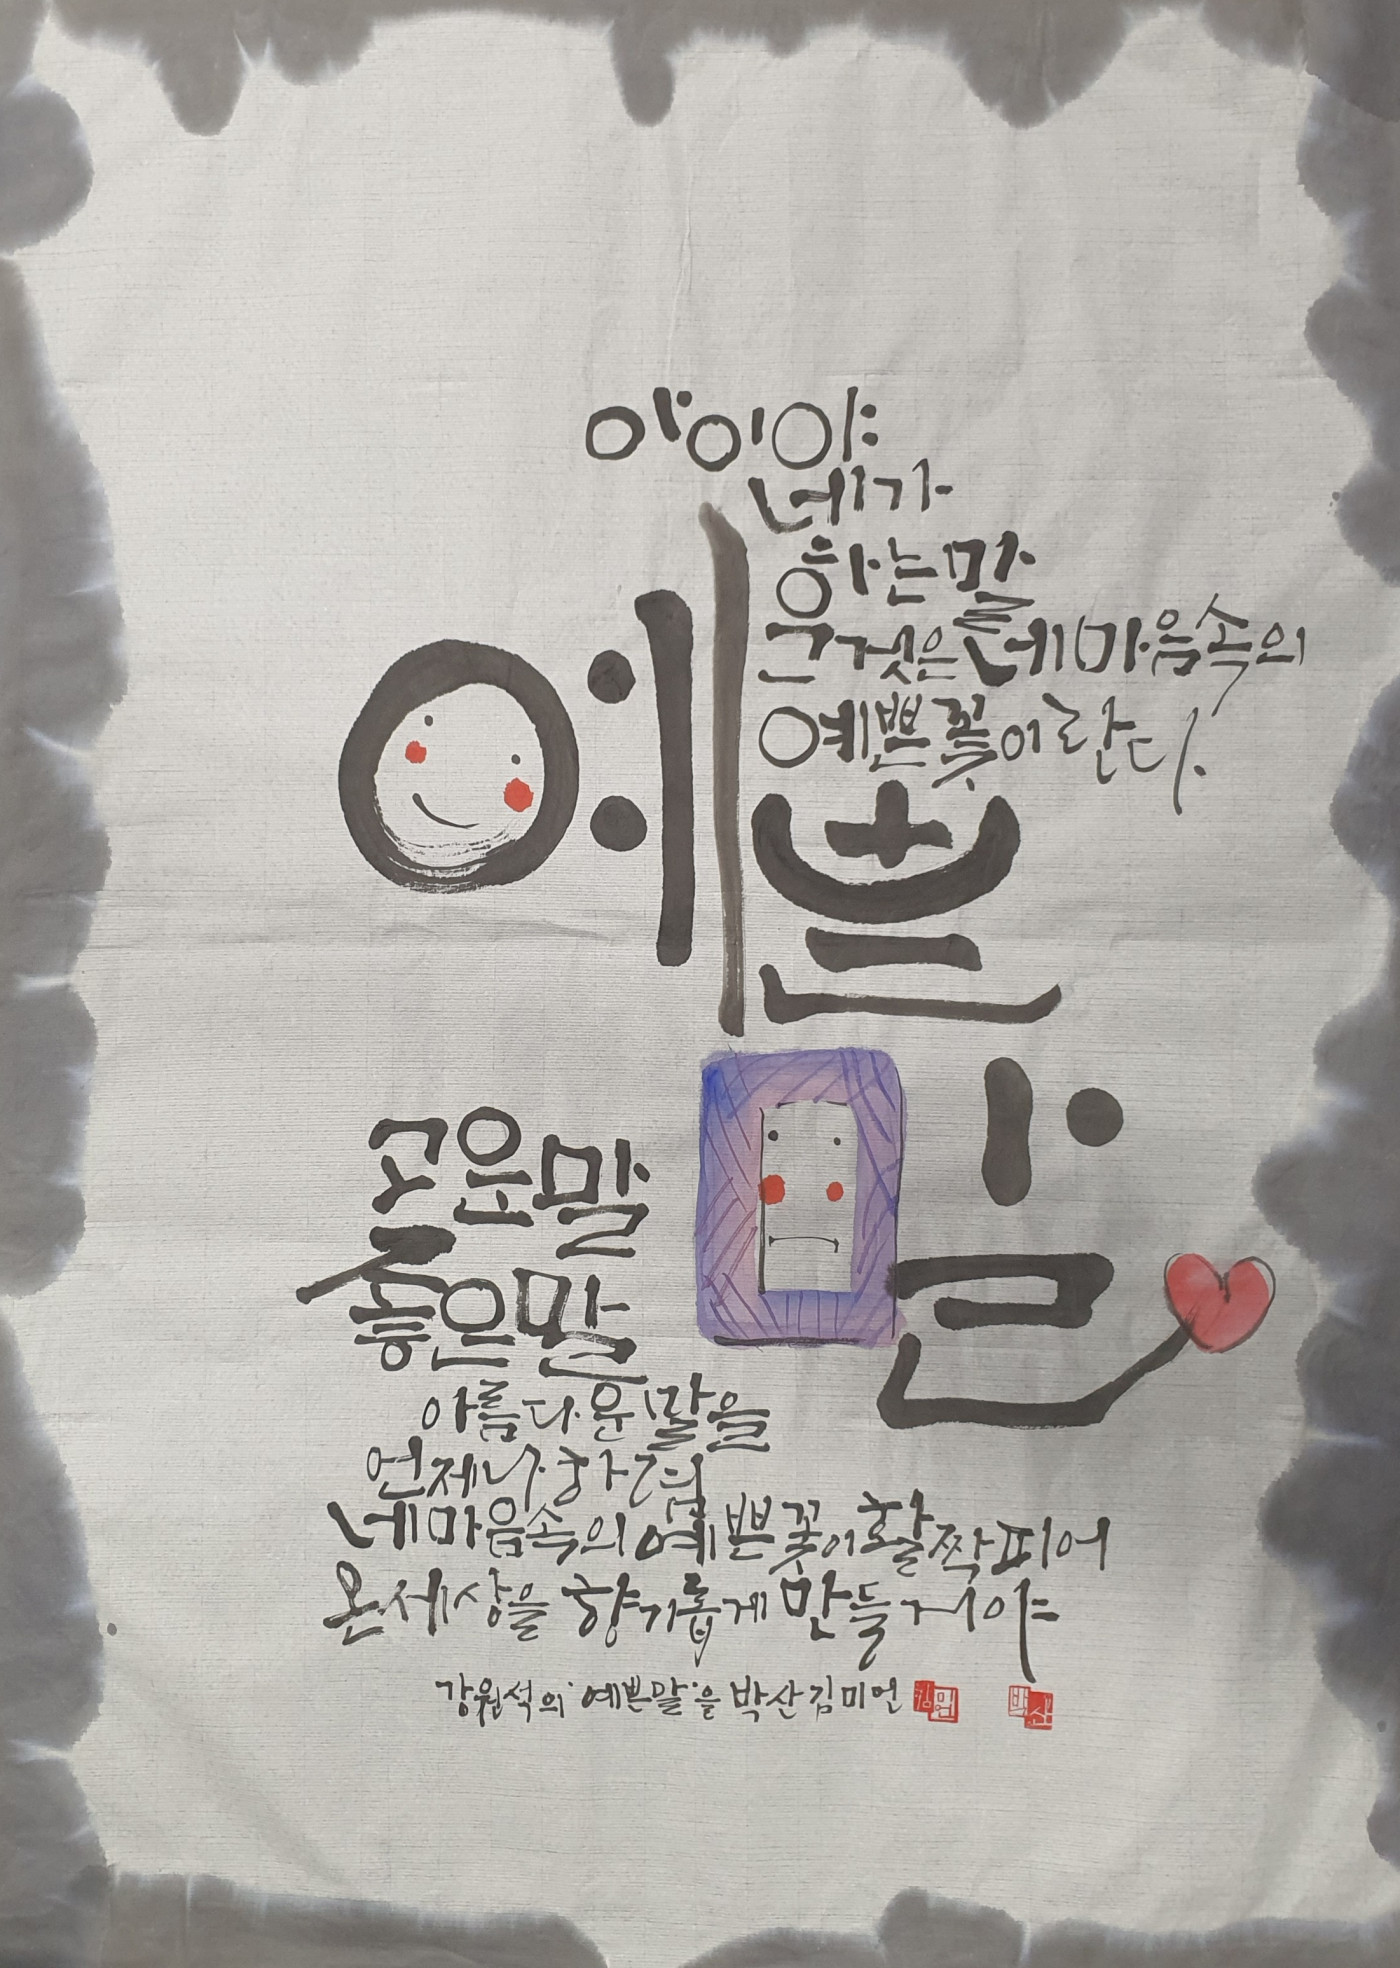 아이야
네가
하는 말
그것은 네 마음속의
예쁜 꽃이란다.
예쁜
말
고운 말
좋은 말
아름다운 말을
언제나 하렴
네 마음속의 예쁜 꽃이 활짝 피어
온 세상을 향기롭게 만들 거야
강원석의 '예쁜말'을 박산 김미언
박산